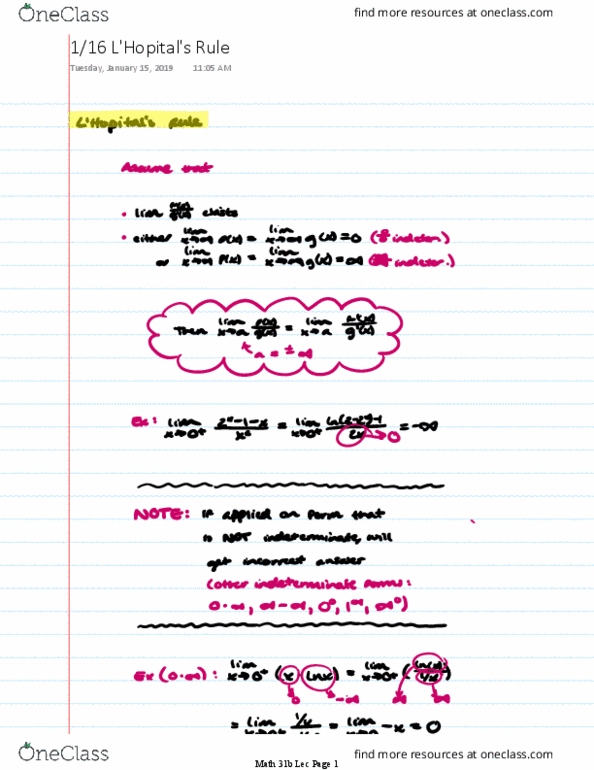 OneClass
find more resources at oneclass.com
1/16 L'Hopital's Rule
Tuesday, January 15, 2019 11:05 AM
L'Hopital's Rule
Assume that
• lim f(x)/g(x) exists
• either lim x→∞ f(x) = lim x→∞ g(x) = 0 (0/0 indeter.)
or lim x→∞ f(x) = lim x→∞ g(x) = ∞ (∞/∞ indeter.)
Then lim x→a f(x)/g(x) = lim x→a f'(x)/g'(x)
a = ±∞
Ex: lim x→0⁺ (2ˣ-1-x)/x² = lim x→0⁺ /2x →0 = -∞
NOTE: If applied on form that
is NOT indeterminate, will
get incorrect answer
(other indeterminate forms:
0·∞, ∞-∞, 0⁰, 1^∞, ∞⁰)
Ex (0·∞): lim x→0⁺ (x lnx) = lim x→0⁺ (ln(x)/(1/x))
0 -∞ ∞ ∞
= lim (1/x)/ = lim -x = 0
OneClass
find more resources at oneclass.com
Math 31b Lec Page 1